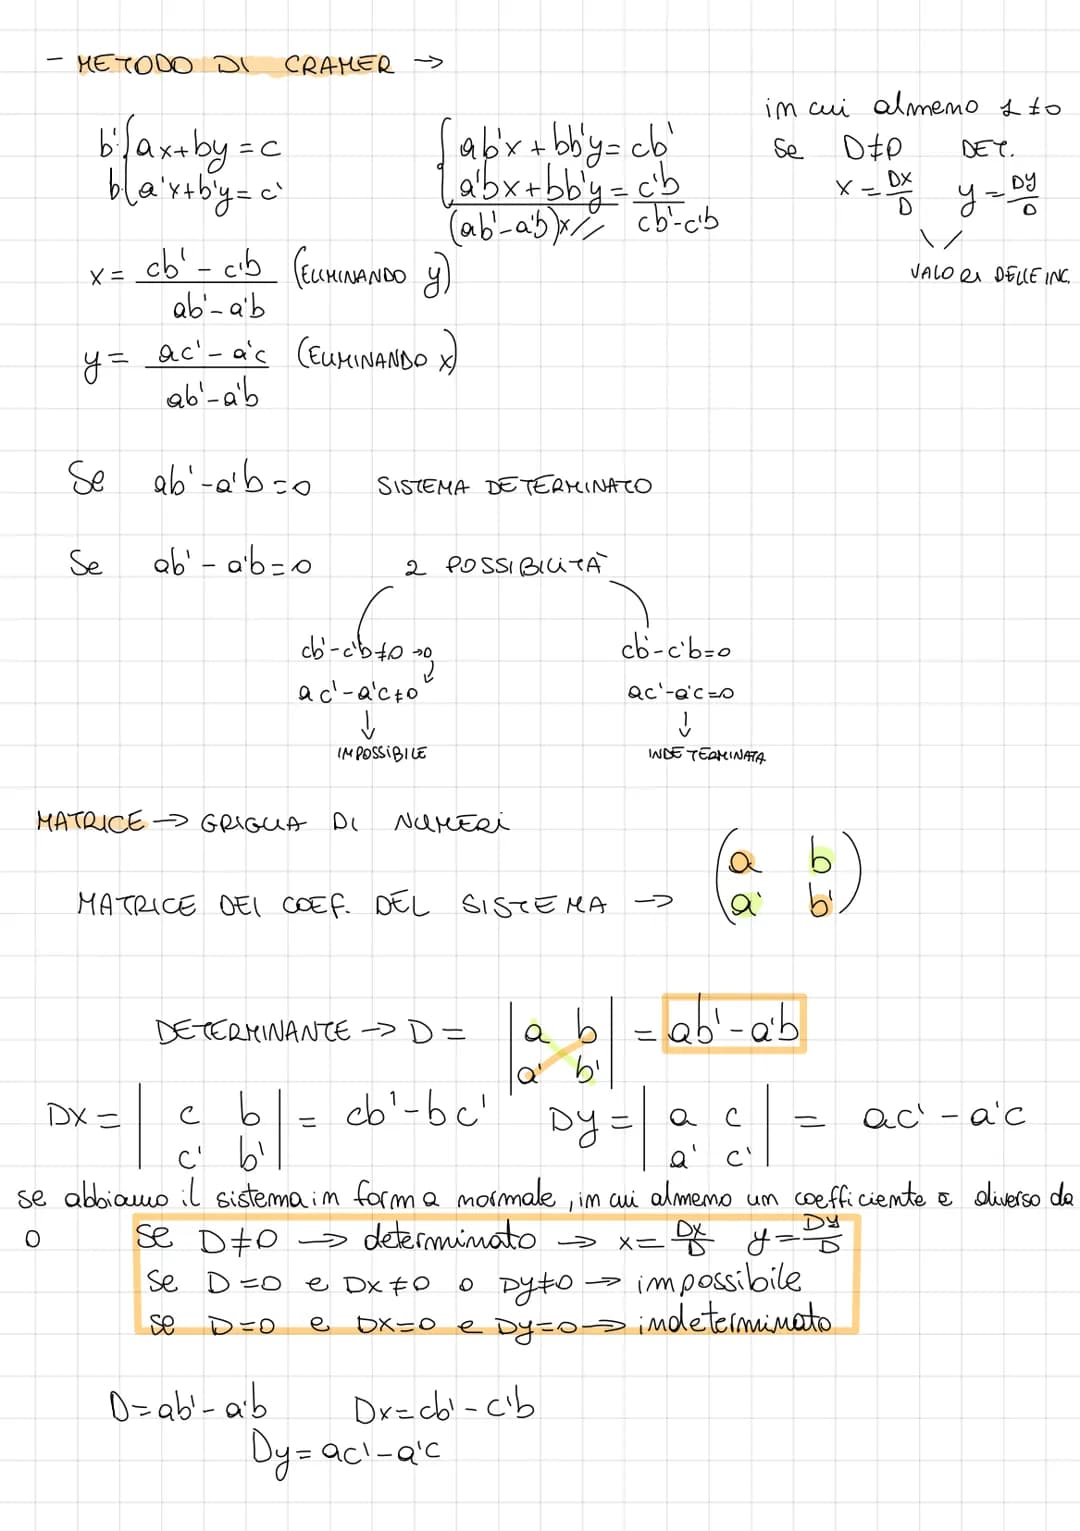 - METODO DI CRAMER →
in cui almeno 1 ≠0
b'{ax+by=c
b{a'x+b'y=c'
{ab'x+bb'y=cb'
{a'bx+bb'y=c'b
(ab'-a'b)x// cb'-c'b
se D≠0 DET.
x=Dx/D y=Dy/D
VALORI DELLE INC.
x= cb'-c'b / ab'-a'b (ELIMINANDO y)
y= ac'-a'c / ab'-a'b (ELIMINANDO x)
Se ab'-a'b=0 SISTEMA DETERMINATO
Se ab'-a'b=0 2 POSSIBILITÀ
cb'-c'b≠0 →o
ac'-a'c≠0
↓
IMPOSSIBILE
cb'-c'b=0
ac'-a'c=0
↓
INDETERMINATA
MATRICE → GRIGLIA DI NUMERI
MATRICE DEI COEF. DEL SISTEMA → (a b
a' b')
DETERMINANTE → D= |a b| = ab'-a'b
|a' b'|
Dx= |c b| = cb'-bc' Dy= |a c| = ac'-a'c
|c' b'| |a' c'|
se abbiamo il sistema in forma normale, in cui almeno un coefficiente è diverso da
0
se D≠0 → determinato → x=Dx/D y=Dy/D
se D=0 e Dx≠0 o Dy≠0 → impossibile
se D=0 e Dx=0 e Dy=0 → indeterminato
D=ab'-a'b Dx=cb'-c'b
Dy=ac'-a'c